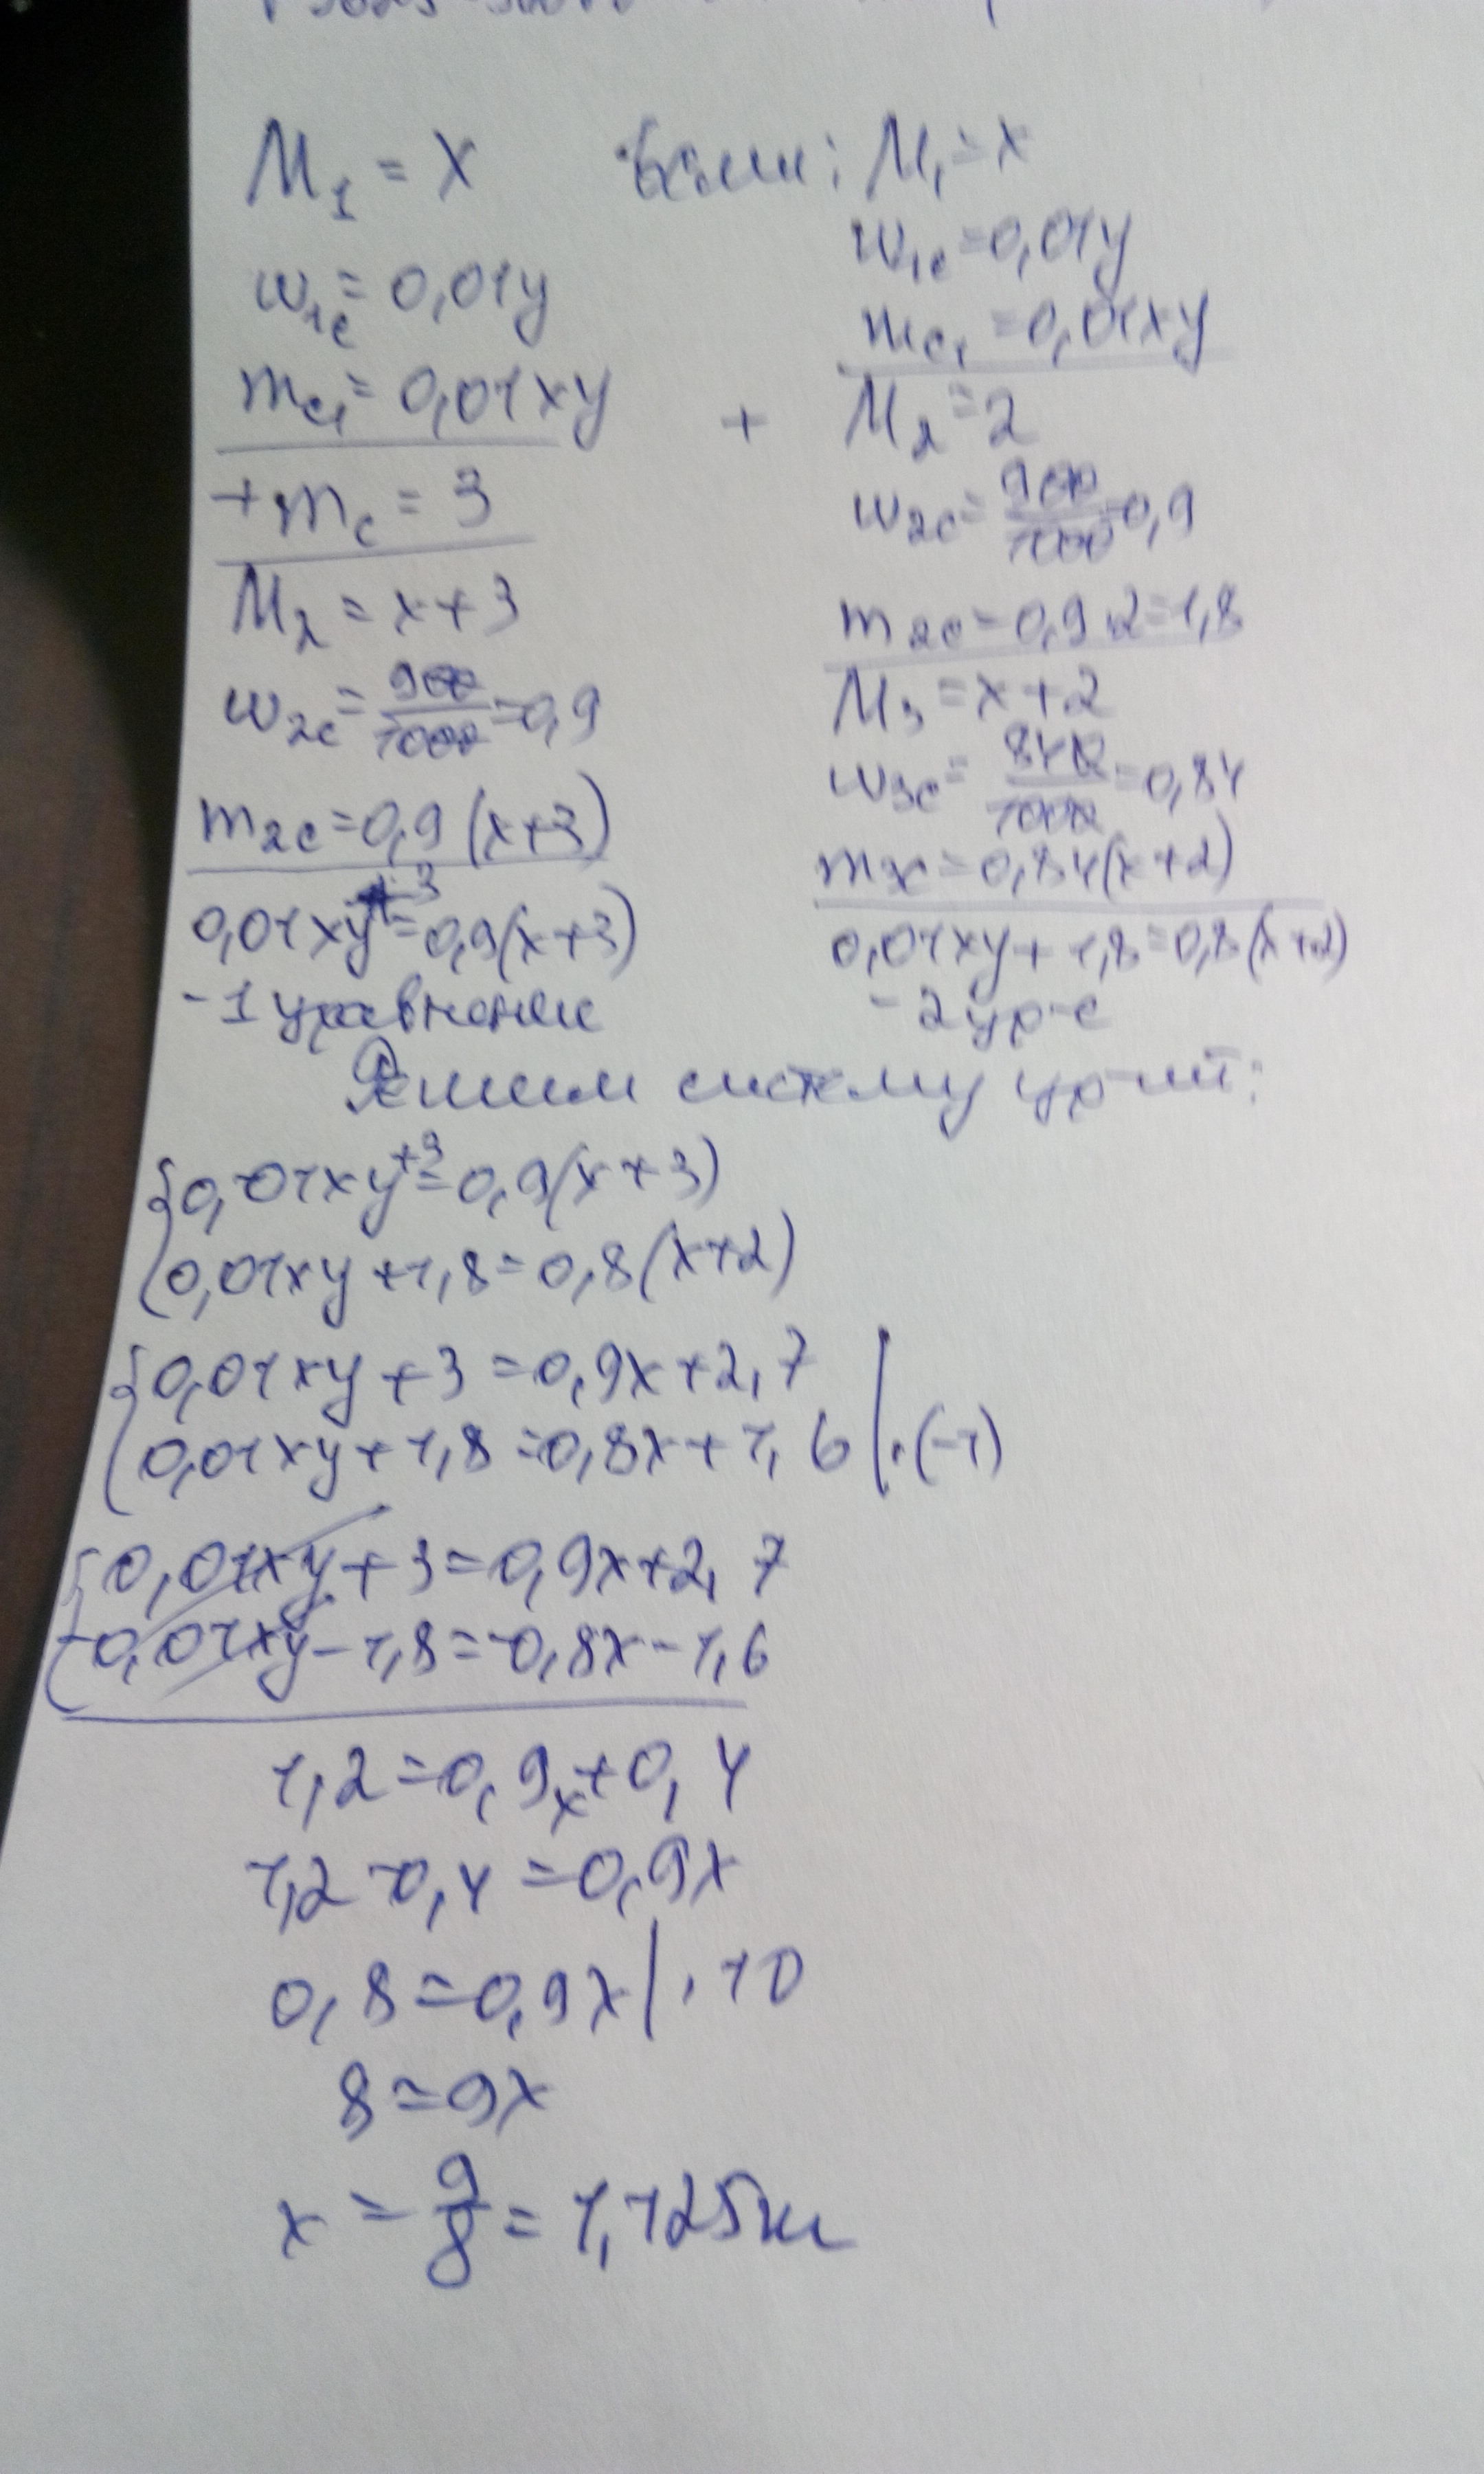 M₁ = x
w₁c = 0,01y
mc₁ = 0,01xy
+ mc = 3
M₂ = x+3
w₂c = 900/1000 = 0,9
m₂c = 0,9(x+3)
0,01xy+3 = 0,9(x+3)
- 1 уравнение
Если: M₁ = x
w₁c = 0,01y
mc₁ = 0,01xy
+ M₂ = 2
w₂c = 900/1000 = 0,9
m₂c = 0,9·2 = 1,8
M₃ = x+2
w₃c = 840/1000 = 0,84
m₃c = 0,84(x+2)
0,01xy + 1,8 = 0,8(x+2)
- 2 ур-е
Решим систему ур-ий:
0,01xy+3 = 0,9(x+3)
0,01xy+1,8 = 0,8(x+2)
0,01xy+3 = 0,9x+2,7
0,01xy+1,8 = 0,8x+1,6 |·(-1)
0,01xy+3 = 0,9x+2,7
-0,01xy-1,8 = -0,8x-1,6
1,2 = 0,9x+0,4
1,2-0,4 = 0,9x
0,8 = 0,9x |·10
8 = 9x
x = 9/8 = 1,125кг